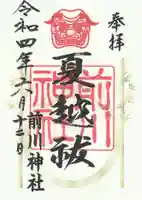 奉拝
前川神社
夏越祓
令和四年六月十二日
前川神社